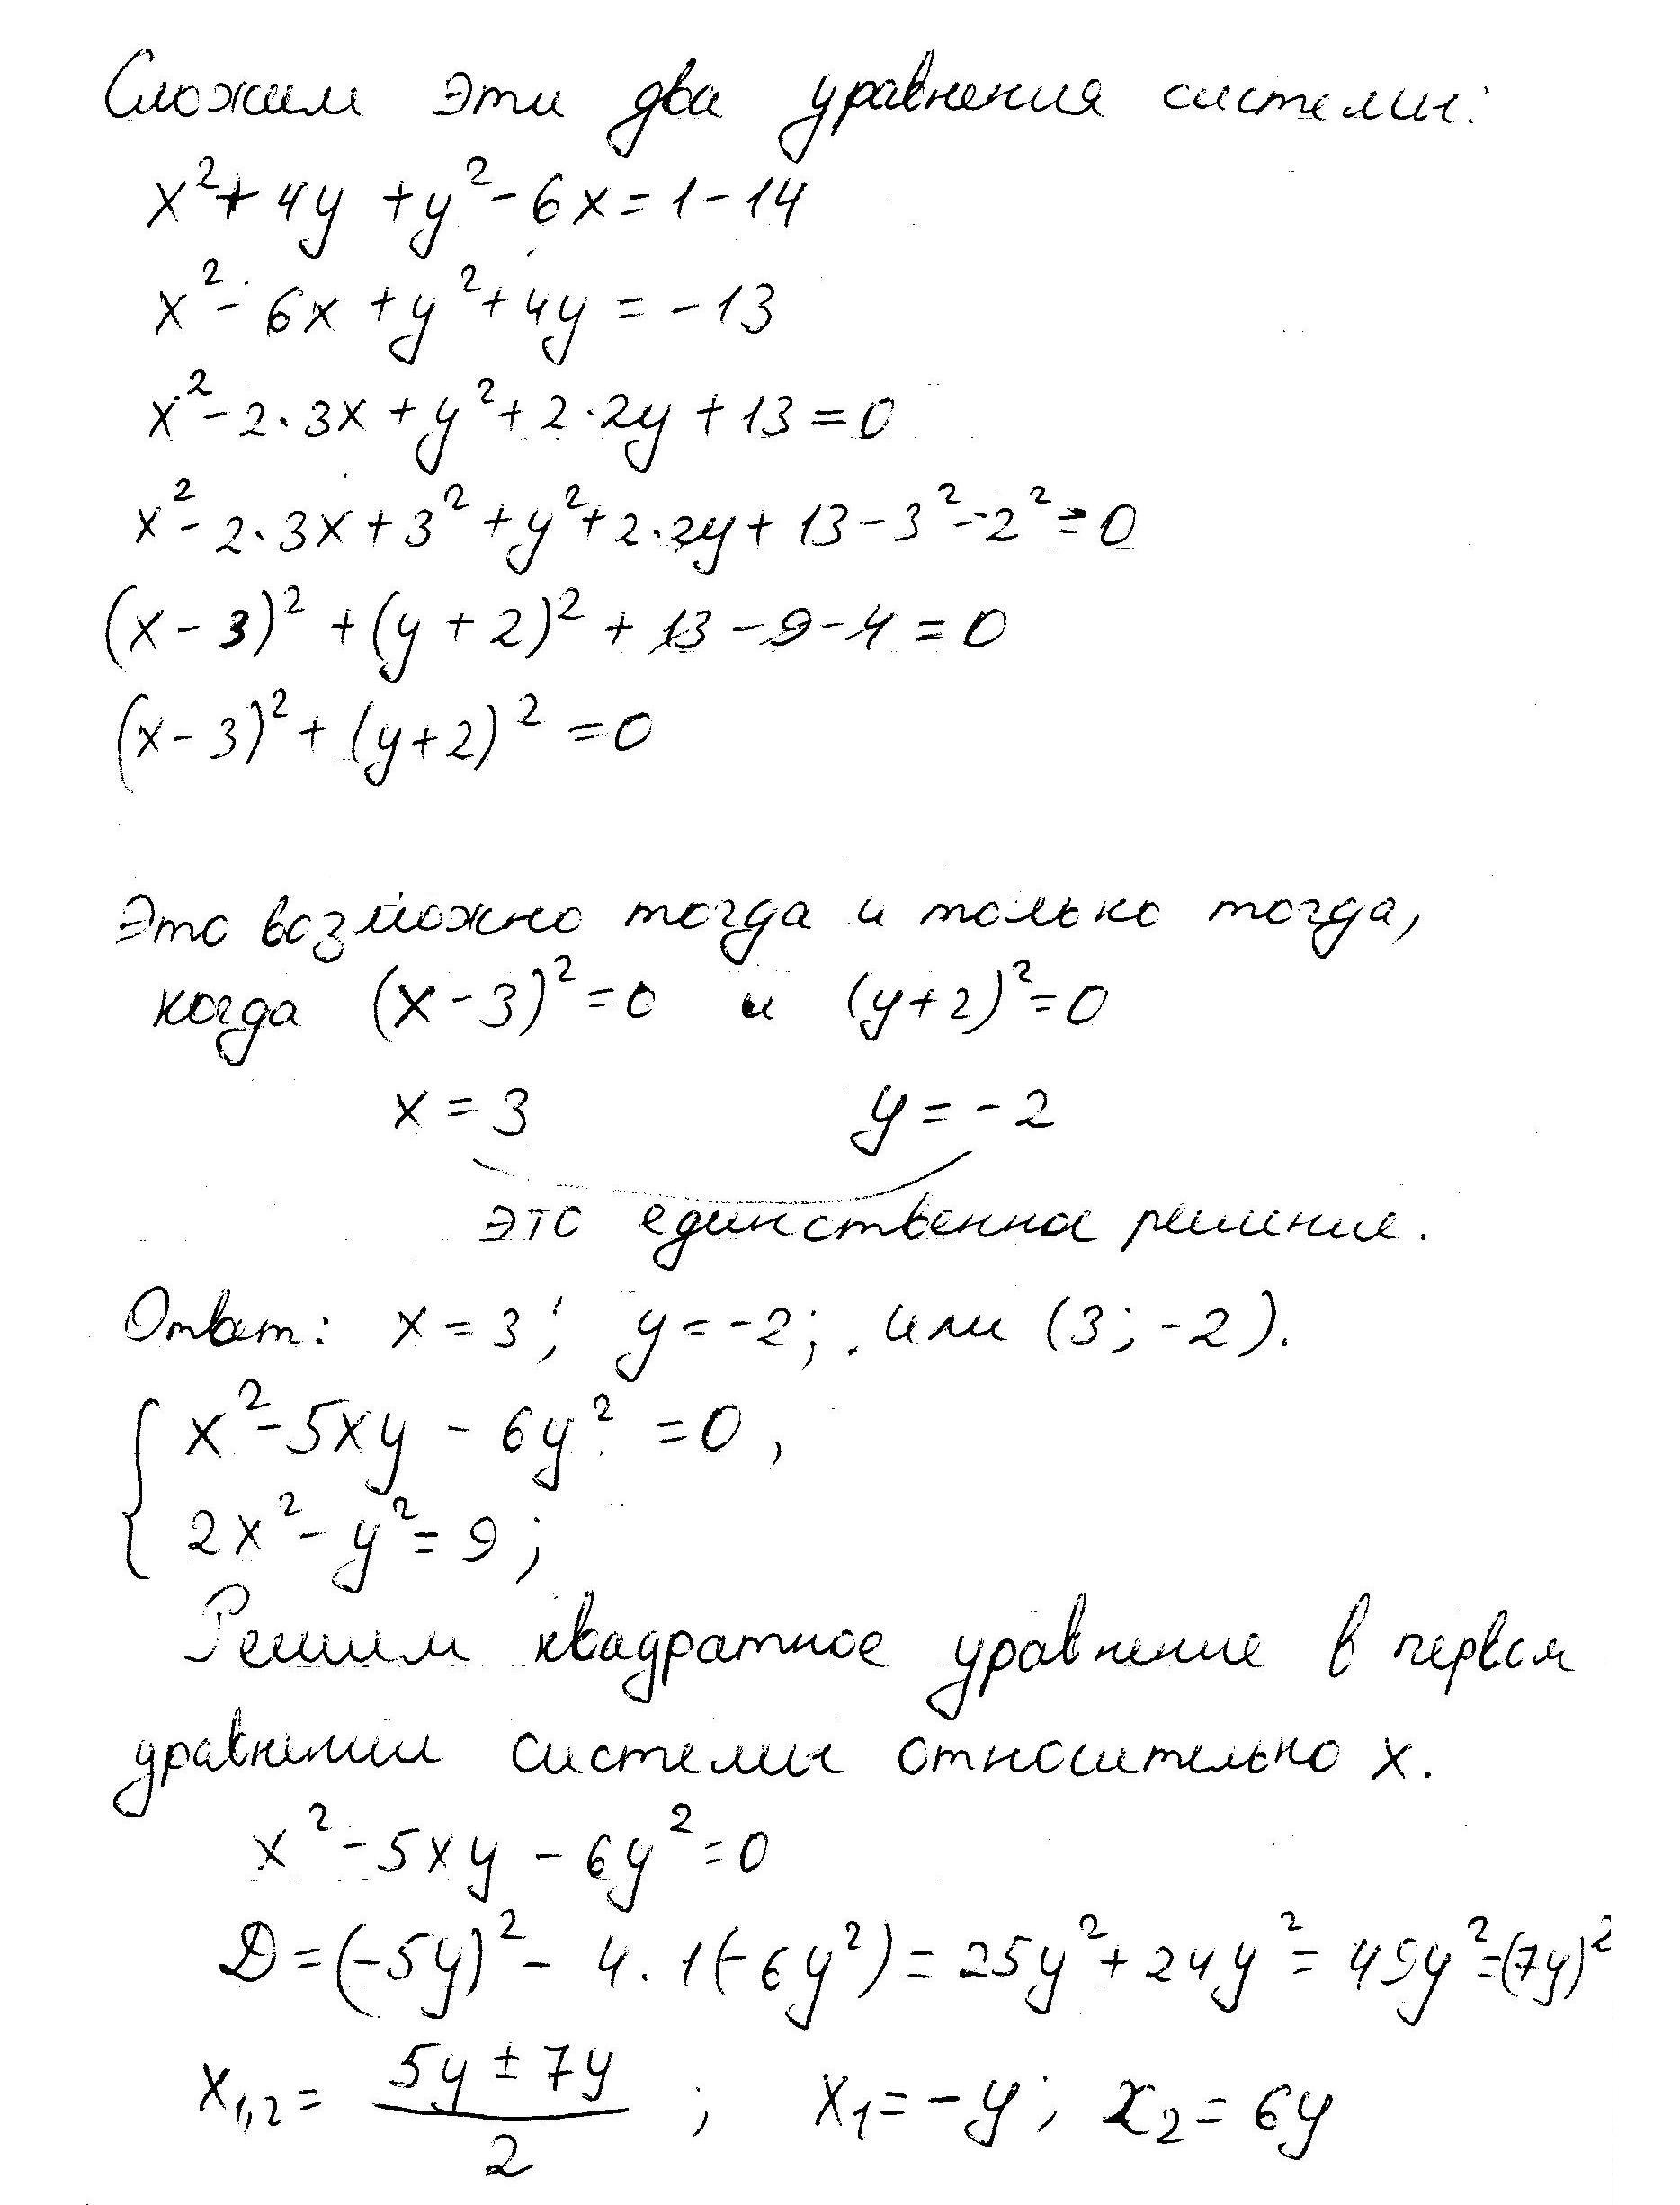 Сложим эти два уравнения системы:
x² + 4y + y² - 6x = 1 - 14
x² - 6x + y² + 4y = -13
x² - 2·3x + y² + 2·2y + 13 = 0
x² - 2·3x + 3² + y² + 2·2y + 13 - 3² - 2² = 0
(x - 3)² + (y + 2)² + 13 - 9 - 4 = 0
(x - 3)² + (y + 2)² = 0
Это возможно тогда и только тогда,
когда (x - 3)² = 0 и (y + 2)² = 0
x = 3 y = -2
это единственное решение.
Ответ: x = 3; y = -2; или (3; -2).
{ x² - 5xy - 6y² = 0,
2x² - y² = 9;
Решим квадратное уравнение в первом
уравнении системы относительно x.
x² - 5xy - 6y² = 0
D = (-5y)² - 4·1(-6y²) = 25y² + 24y² = 49y² = (7y)²
x₁,₂ = (5y ± 7y)/2 ; x₁ = -y; x₂ = 6y